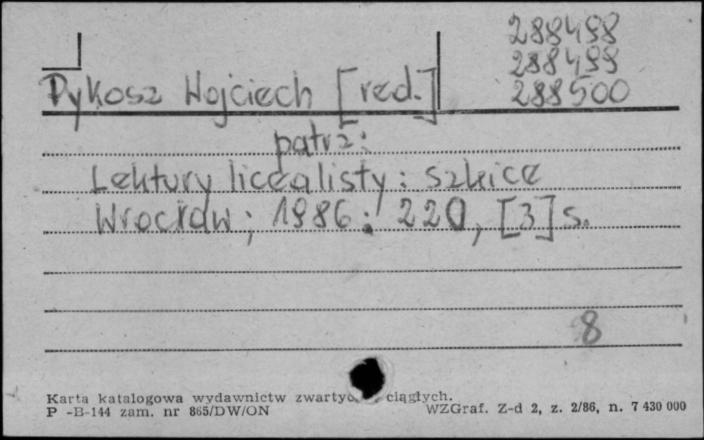 288498
288499
288500
Dykosz Wojciech [red.]
patrz:
Lektury licealisty: szkice
Wrocław; 1986; 220, [3] s.
8
Karta katalogowa wydawnictw zwartyc ciągłych.
P -B-144 zam. nr 865/DW/ON WZGraf. Z-d 2, z. 2/86, n. 7 430 000